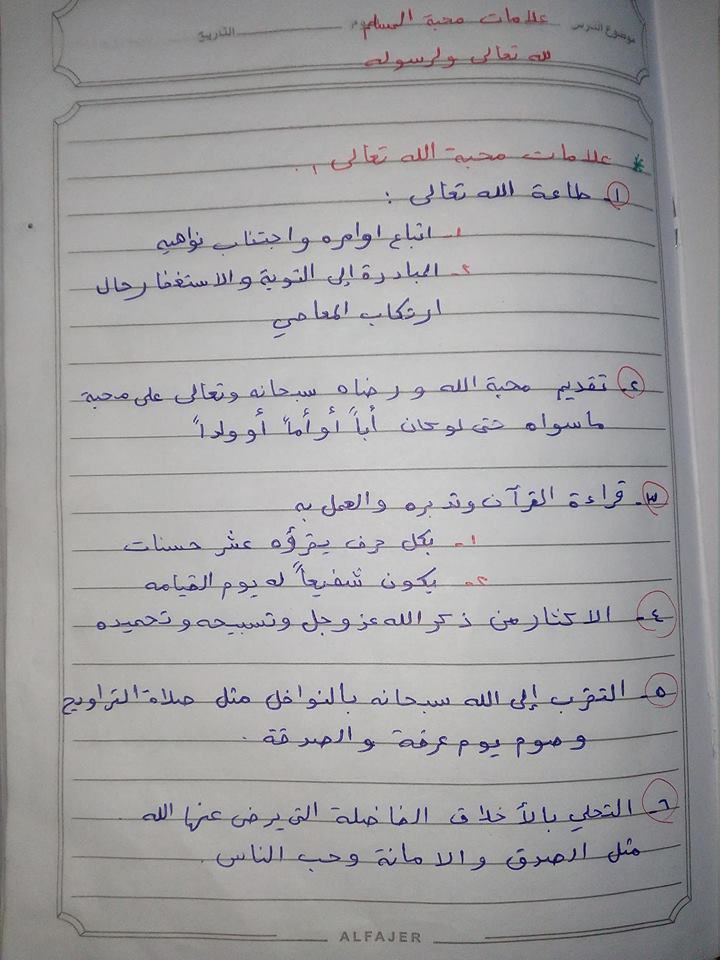 موضوع الدرس علامات محبة المسلم اليوم التاريخ
لله تعالى ولرسوله
* علامات محبة الله تعالى :
١- طاعة الله تعالى :
١- اتباع اوامره واجتناب نواهيه
٢- المبادرة إلى التوبة والاستغفار حال
ارتكاب المعاصي
٢- تقديم محبة الله ورضاه سبحانه وتعالى على محبة
ماسواه حتى لو كان أباً أو أماً أو ولداً
٣- قراءة القرآن وتدبره والعمل به
١- بكل حرف يقرؤه عشر حسنات
٢- يكون شفيعاً له يوم القيامه
٤- الاكثار من ذكر الله عز وجل وتسبيحه وتحميده
٥- التقرب إلى الله سبحانه بالنوافل مثل صلاة التراويح
وصوم يوم عرفة والصدقة .
٦- التحلي بالأخلاق الفاضلة التي يرضى عنها الله
مثل الصدق والامانة وحب الناس .
ALFAJER